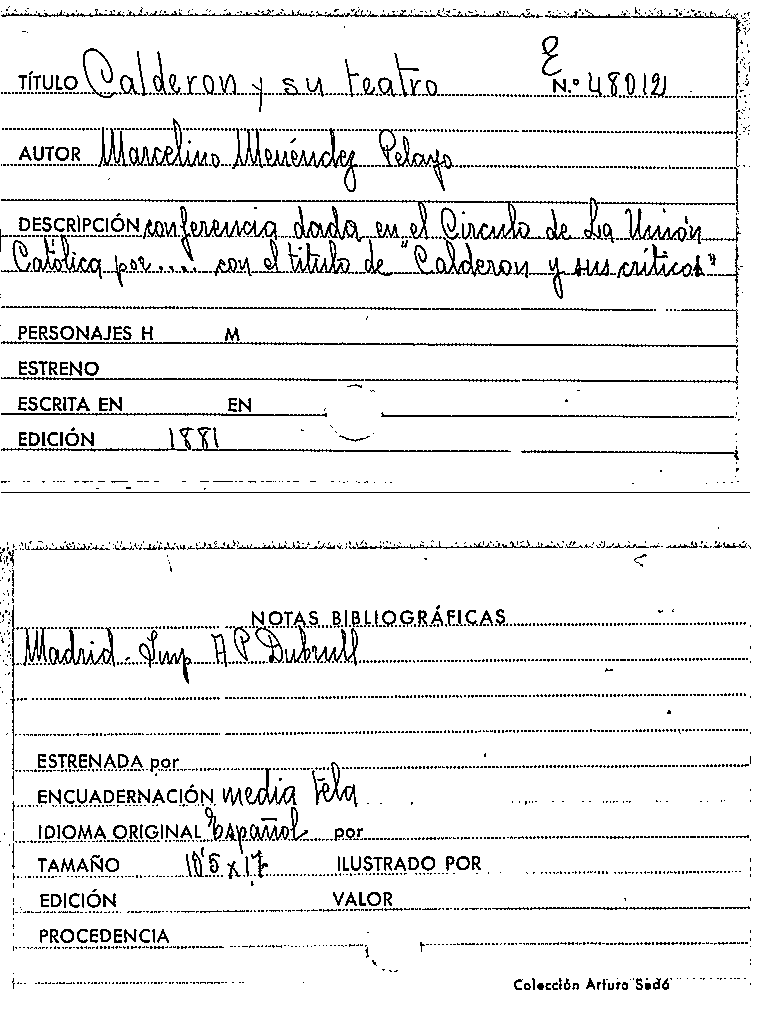 E
TÍTULO Calderon y su teatro N.º 48012
AUTOR Marcelino Menéndez Pelayo
DESCRIPCIÓN conferencia dada en el Circulo de La Unión
Católica por.... con el titulo de "Calderon y sus críticos"
PERSONAJES H M
ESTRENO
ESCRITA EN EN
EDICIÓN 1881
NOTAS BIBLIOGRÁFICAS
Madrid. Imp A P Dubrull
ESTRENADA por
ENCUADERNACIÓN media tela
IDIOMA ORIGINAL Español por
TAMAÑO 10'5 x 17 ILUSTRADO POR
EDICIÓN VALOR
PROCEDENCIA
Colección Arturo Sedó